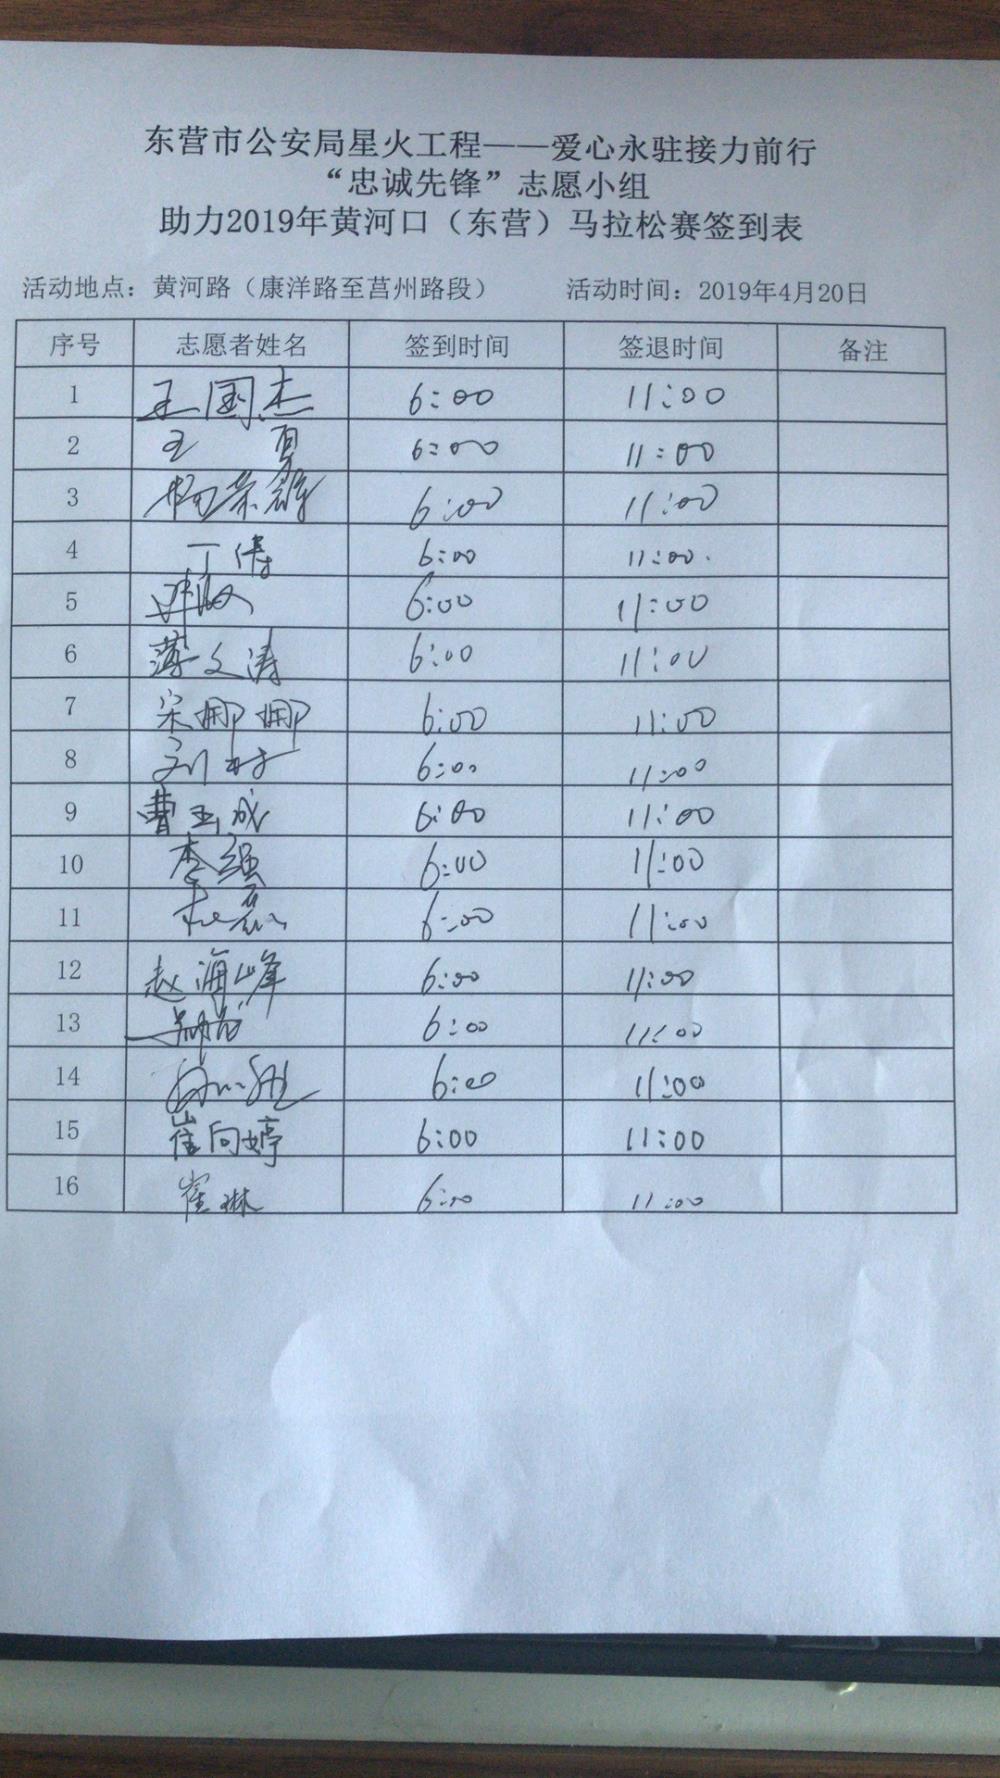 东营市公安局星火工程——爱心永驻接力前行
“忠诚先锋”志愿小组
助力2019年黄河口（东营）马拉松赛签到表
活动地点：黄河路（康洋路至莒州路段） 活动时间：2019年4月20日
序号 志愿者姓名 签到时间 签退时间 备注
1 王国杰 6:00 11:00
2 王 6:00 11:00
3 杨荣 6:00 11:00
4 丁伟 6:00 11:00.
5 6:00 11:00
6 薄文涛 6:00 11:00
7 宋娜娜 6:00 11:00
8 刘村 6:00 11:00
9 曹玉成 6:00 11:00
10 李强 6:00 11:00
11 杜磊 6:00 11:00
12 赵海峰 6:00 11:00
13 6:00 11:00
14 6:00 11:00
15 崔向婷 6:00 11:00
16 崔琳 6:00 11:00